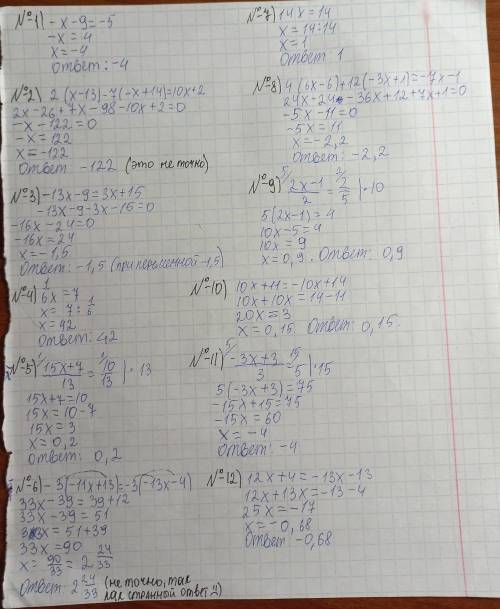 №1) -x-9=-5
-x=4
x=-4
Ответ: -4
№2) 2(x-13)-7(-x+14)=10x+2
2x-26+7x-98-10x+2=0
-x-122=0
-x=122
x=-122
Ответ: -122 (это не точно)
№3) -13x-9=3x+15
-13x-9-3x-15=0
-16x-24=0
-16x=24
x=-1,5
Ответ: -1,5 (при переменной -1,5)
№4) 1/6x=7
x=7:1/6
x=42
Ответ: 42
№5) (15x+7)/13=10/13 |·13
15x+7=10
15x=10-7
15x=3
x=0,2
Ответ: 0,2
№6) -3(-11x+13)=-3(-13x-4)
33x-39=39+12
33x-39=51
33x=51+39
33x=90
x=90/33=2 24/33
Ответ: 2 24/33 (не точно, так
как странный ответ :))
№7) 14x=14
x=14:14
x=1
Ответ 1
№8) 4(6x-6)+12(-3x+1)=-7x-1
24x-24-36x+12+7x+1=0
-5x-11=0
-5x=11
x=-2,2
Ответ: -2,2
№9) 5/ (2x-1)/2=2/ 2/5 |·10
5(2x-1)=4
10x-5=4
10x=9
x=0,9. Ответ: 0,9
№10) 10x+11=-10x+14
10x+10x=14-11
20x=3
x=0,15. Ответ: 0,15.
№11) 5/ (-3x+3)/3=15/5 |·15
5(-3x+3)=75
-15x+15=75
-15x=60
x=-4
Ответ: -4
№12) 12x+4=-13x-13
12x+13x=-13-4
25x=-17
x=-0,68
Ответ: -0,68